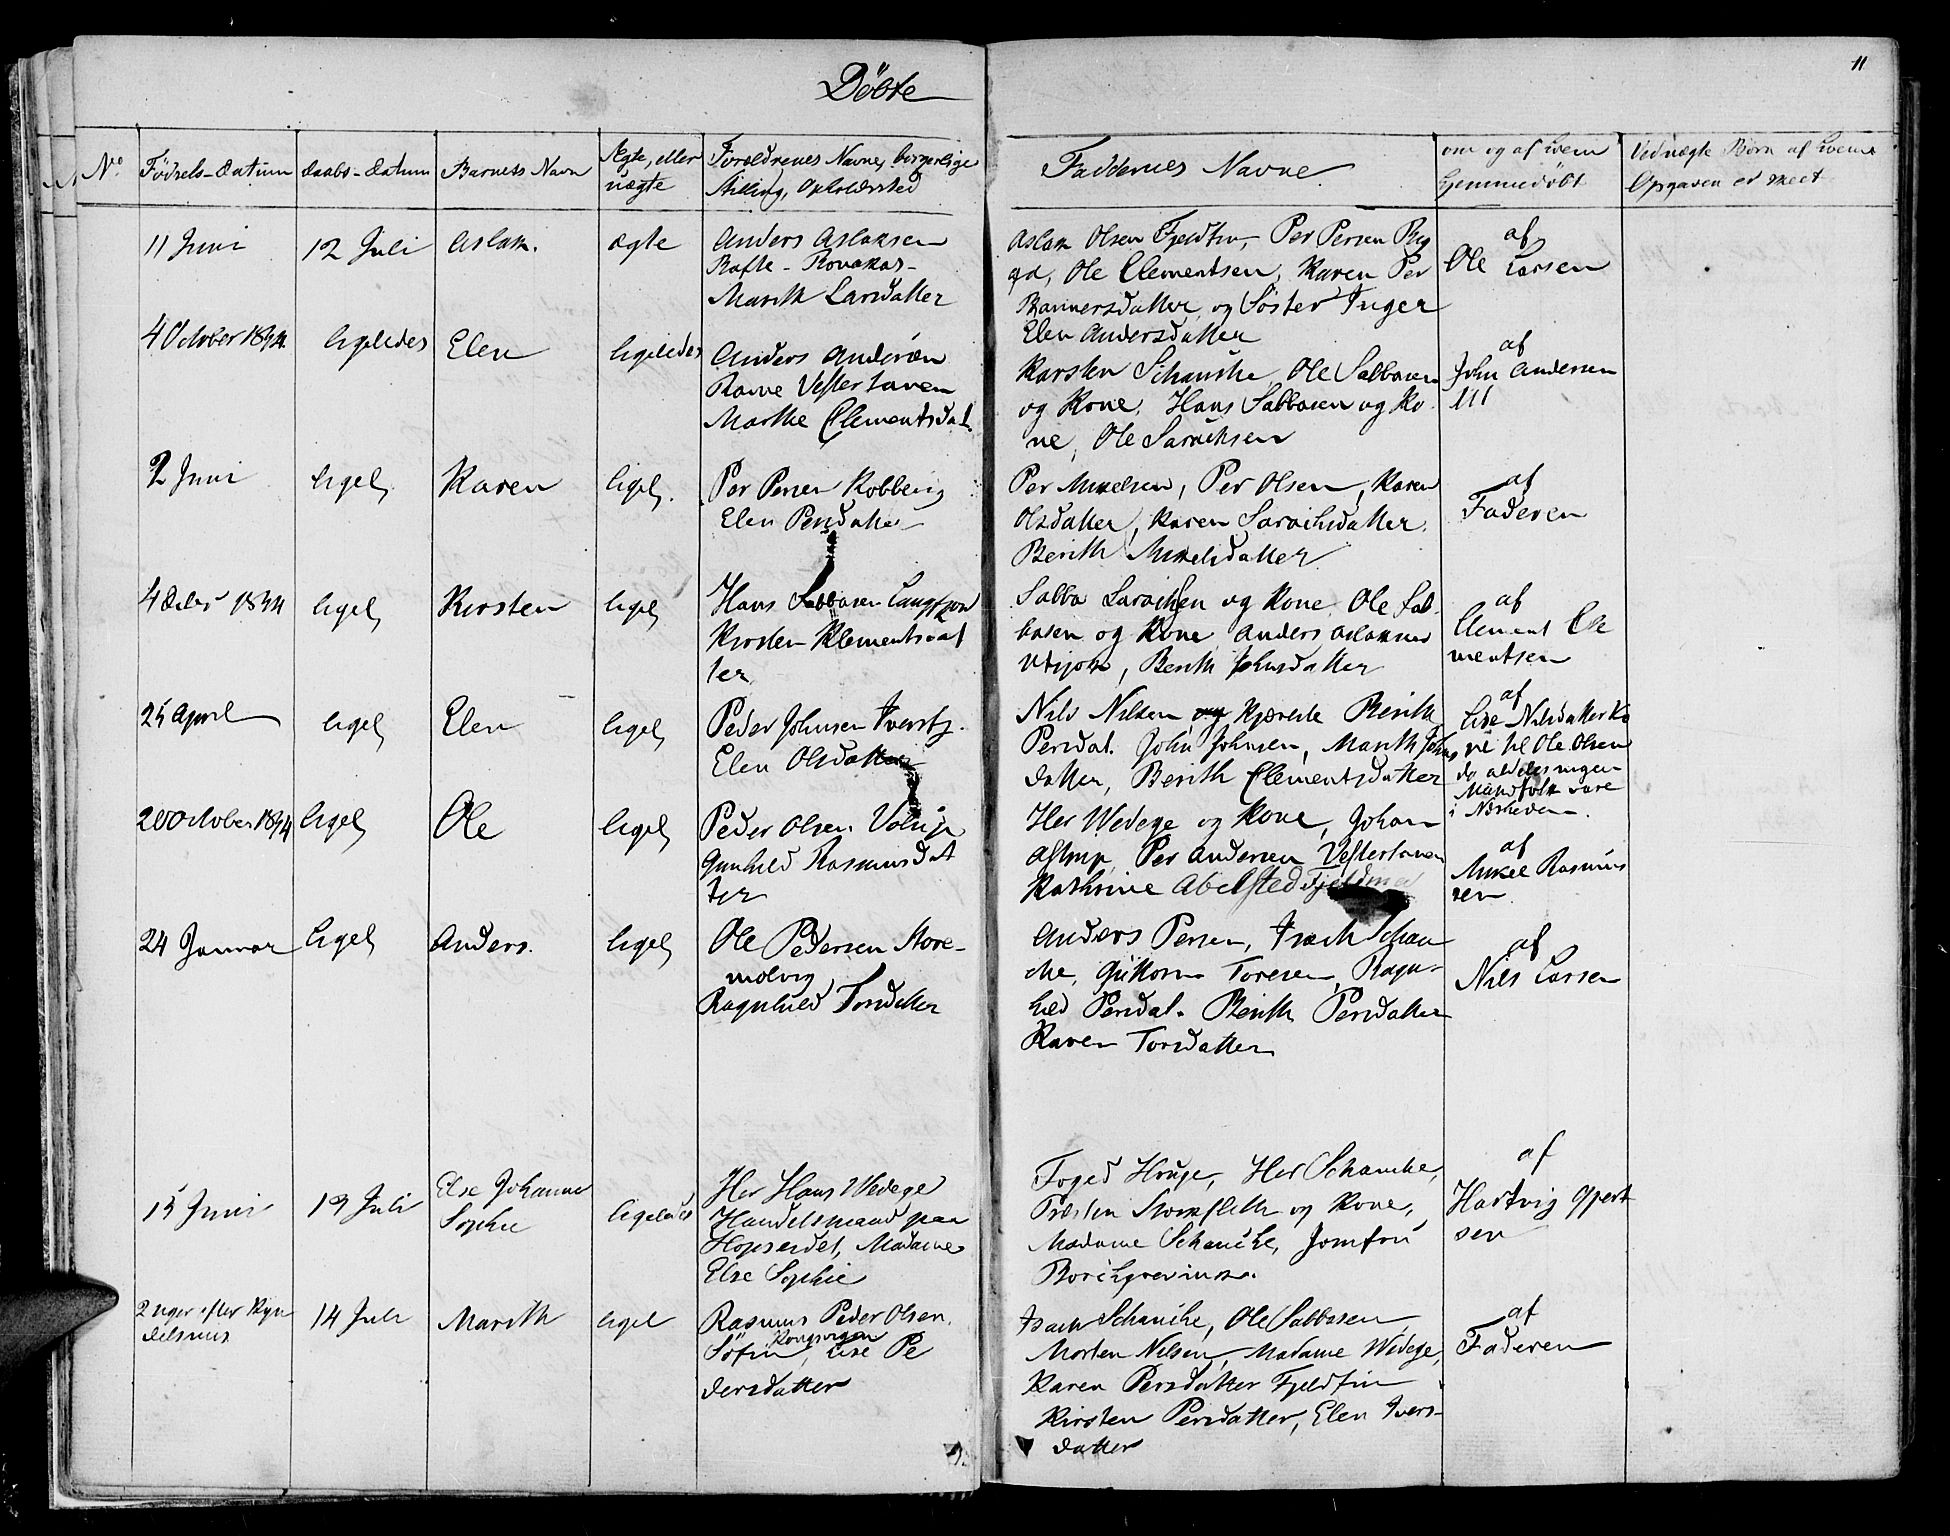 11
Döbte
No
Födsels-Datum
Daabs-Datum
Barnets Navn
Ægte, eller
uægte
Forældrenes Navne, borgerlige
Stilling, Opholdssted
Faddernes Navne
om og af hvem
hjemmedöbt
Ved uægte Børn af hvem
Opgaven er skeet
11 Juni
12 Juli
Aslak.
ægte
Anders Aslaksen
Marith Larsdatter
Aslak Olsen Fjeldfin, Per Persen
Ole Clementsen, Karen Per
og Söster Inger
Elen Andersdatter
af
Ole Larsen
4 October 1834
ligeledes
Elen
ligeledes
Anders Andersen
Ravne Vestertanen
Marthe Clementsdat.
Karsten Schanche, Ole Sabbasen
og Kone, Hans Sabbasen og Ko
ne, Ole
af
John Andersen
2 Juni
ligel
Karen
ligel.
Per Persen Kobberig
Elen Persdatter
Per Mikelsen, Per Olsen, Karen
Olsdatter, Karen
Berith Mikelsdatter
af
Faderen
4 1834
ligel
Kirsten
ligel
Hans Sabbasen Langfjord
Kirsten Klementsdat
ter
Sabba og Kone Ole Sab
basen og Kone Anders
Berith Johnsdatter
af
Clement Cle
mentsen
25 April
ligel
Elen
ligel
Peder Johnsen
Elen Olsdatter
Nils Nilsen og Kjæreste Berith
Persdat. John Johnsen, Marith Johns
datter, Berith Clementsdatter
af
Lise Nilsdatter Ko
ne til Ole Olsen
da aldeles ingen
Mandfolk vare
i Nærheden.
20 October 1834
ligel
Ole
ligel
Peder Olsen
Gunhild Rasmusdat
ter
Her Wedege og Kone, Johan
Astrup, Per Andersen Vestertanen
Kathrine Abelsted
af
Mikel Rasmus
sen
24 Januar
ligel
Anders.
ligel
Ole Pedersen Store-
molvig
Ragnhild Torsdatter
Anders Persen, Isach Schan
che, Guttorm Toresen, Ragn-
hild Persdat. Berith Persdatter
Karen Torsdatter
af
Nils Larsen
15 Juni
13 Juli
Else Johanne
Sophie
ligeledes
Her Hans Wedege
Handelsmand paa
Hopseidet, Madame
Else Sophie
Foged Houge, Her Schanche,
Præsten Stockfleth og Kone,
Madame Schanche, Jomfru
Borchgrevinck.
af
Hartvig Gjert
sen
2 Uger efter Kyn
delsmis
14 Juli
Marith
ligel
Rasmus Peder Olsen.
Kongsvigen
Söfin, Lise Pe
dersdatter
Isach Schanche, Ole Sabbasen
Morten Nilsen, Madame Wedege,
Karen Persdatter Fjeldfin
Kirsten Persdatter, Elen Ivers-
datter
af
Faderen